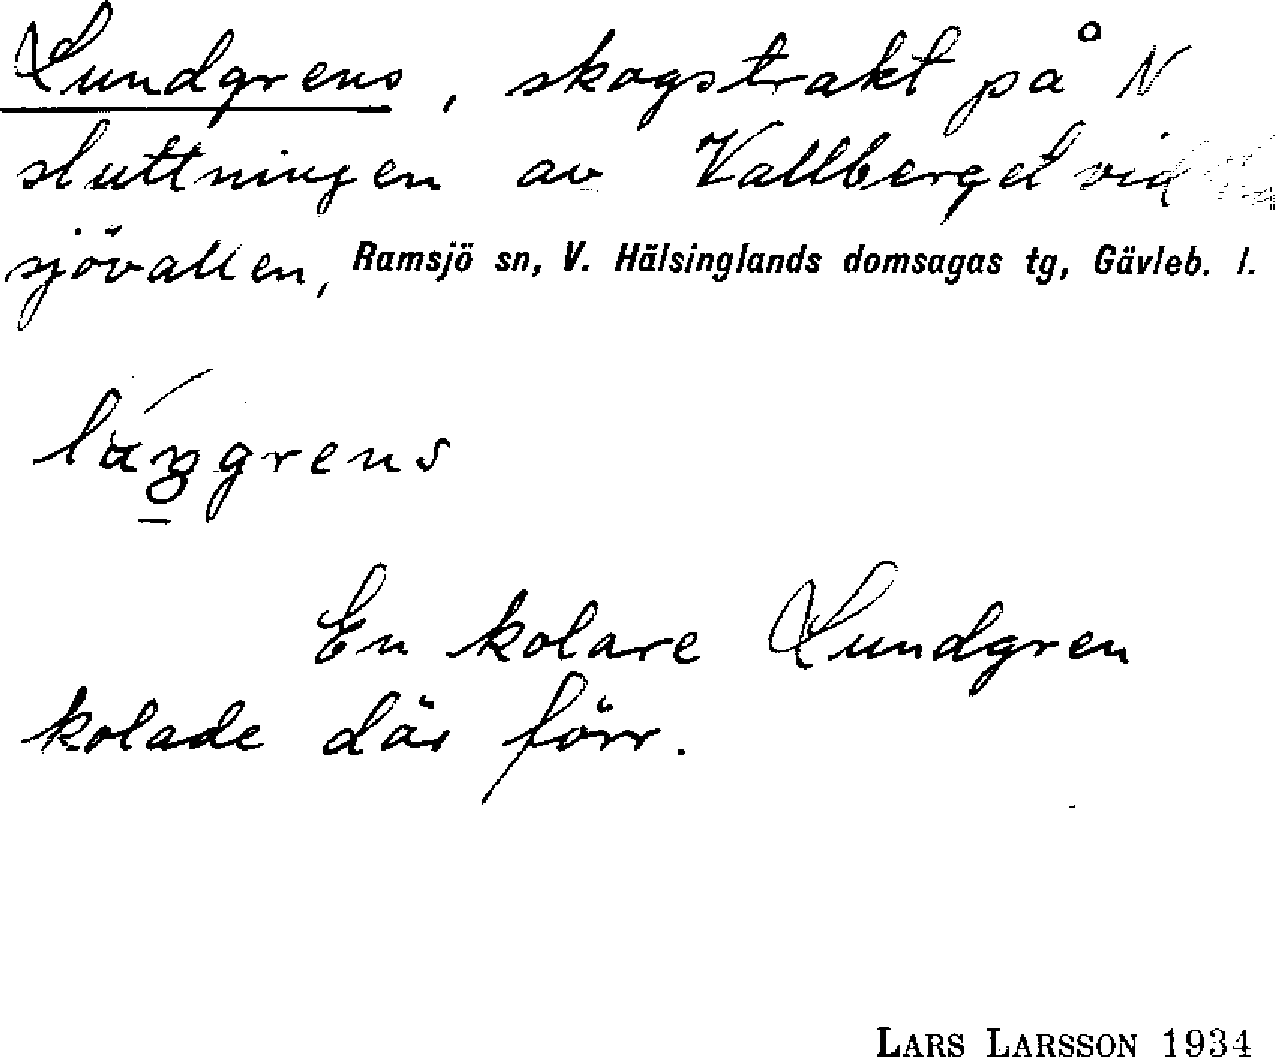 Lundgrens, skogstrakt på N
sluttningen av Vallberget vid
sjövallen, Ramsjö sn, V. Hälsinglands domsagas tg, Gävleb. l.
En kolare Lundgren
kolade där förr.
LARS LARSSON 1934